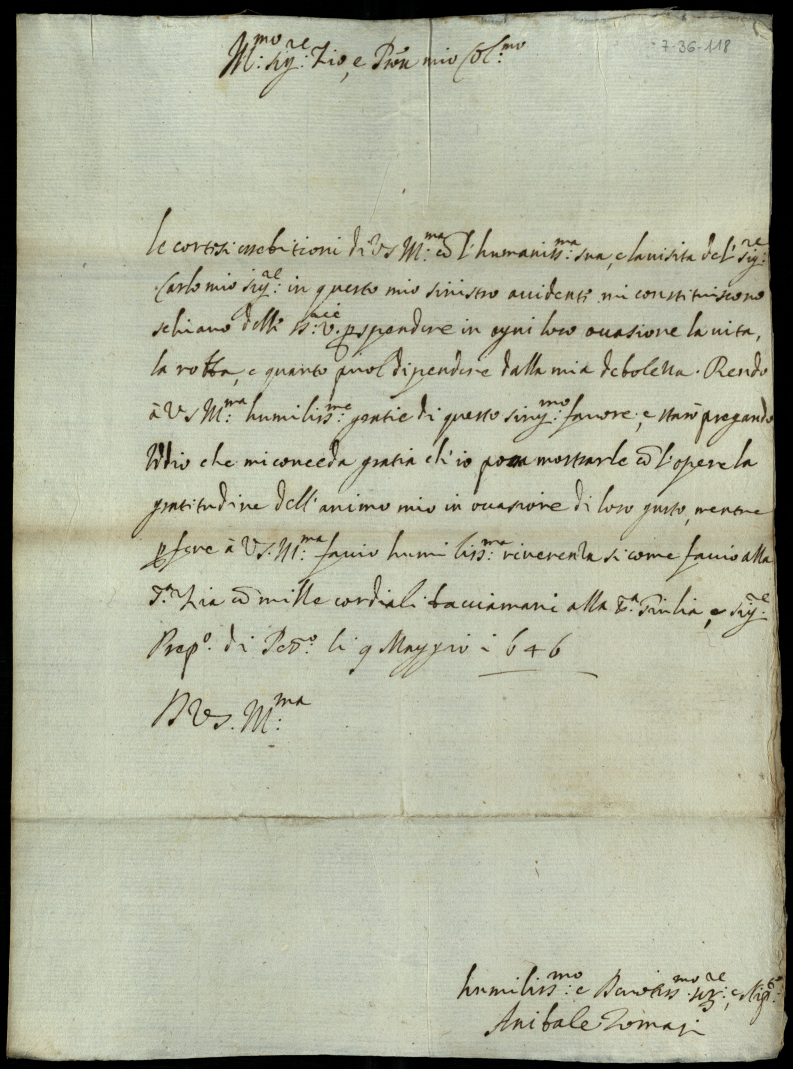 7-36-118
Ill:mo Sig:re Zio, e Pron mio Col:mo
le cortesi essebitioni di VS Ill:ma cō l'humaniss:ma sua, e la visita del' Sig:re
Carlo mio Sig:re in questo mio sinistro accidente mi constituiscono
schiavo delli spendere in ogni loro occasione la vita,
la robba, e quanto puol dipendere dalla mia debolezza. Rendo
à VS Ill:ma humiliss:me gratie di questo sing:mo favore, e starò pregando
Iddio che mi conceda gratia ch'io possa mostrarle cō l'opere la
gratitudine dell'animo mio in occasione di loro gusto, mentre
à VS. Ill:ma faccio humiliss:ma riverenza si come faccio alla
S.ra Zia cō mille cordiali bacciamani alla S.ra Giulia, e Sig:re
Prep.o di li 9 Maggio i646
D VS. Ill:ma
humiliss:mo e Devotiss:mo s:re, e Nip:te
Anibale Tomasi